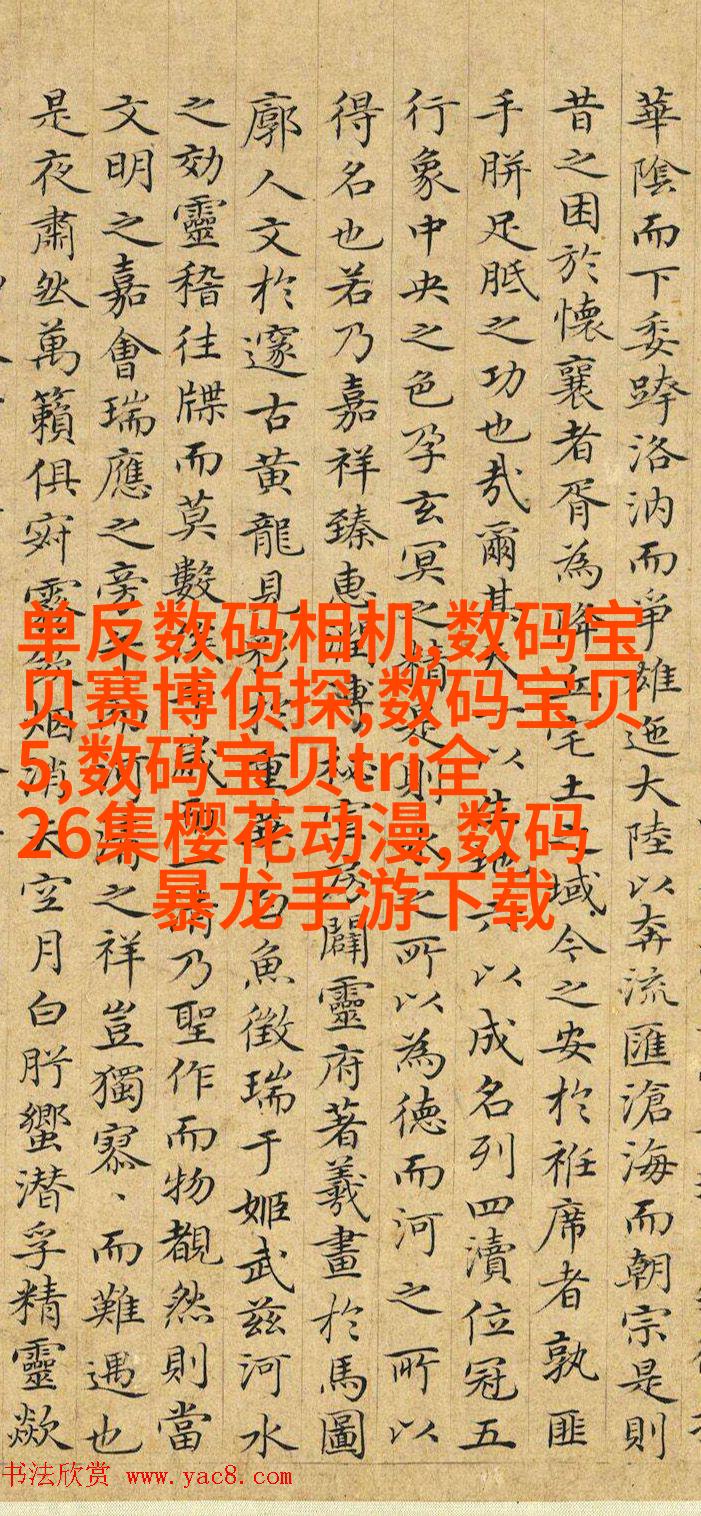 華陰而下委洛汭而爭雄迤大陸以奔流匯滄海而朝宗是則
昔之困於懷襄者胥為降丘宅土之域今之安於袵席者孰匪
手胼足胝之功也哉爾其天一以生地六以成名列四瀆位冠五
行象中央之色孕玄冥之精是則水之所以為德而河之所以
得名也若乃嘉祥臻惠秘闢靈府著羲畫於馬圖
廓人文於邃古黃龍見彩於重華白魚徵瑞于姬武茲河水
之効靈稽往牒而莫數俟千歲而一清乃聖作而物覩然則當
文明之嘉會瑞應之旁午而河清之祥豈獨寥、而難遇也
是夜肅然萬籟俱寂露烟消天空月白肸蠁潜孚精靈歘
单反数码相机,数码宝
贝赛博侦探,数码宝贝
5,数码宝贝tri全
26集樱花动漫,数码
暴龙手游下载
书法欣赏 www.yac8.com